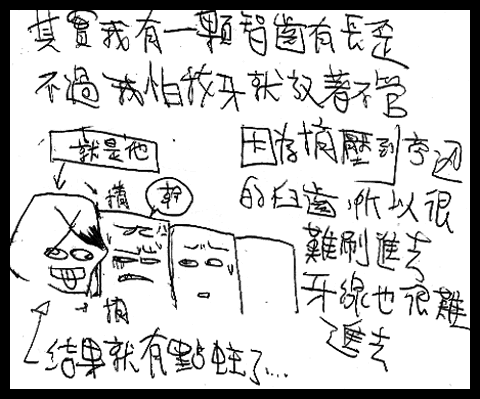 其實我有一顆智齒有長歪
不過我怕拔牙就放著不管
就是他
擠
幹
擠
因為擠壓到旁邊
的臼齒,所以很
難刷進去
牙線也很難
進去
結果就有點蛀了...